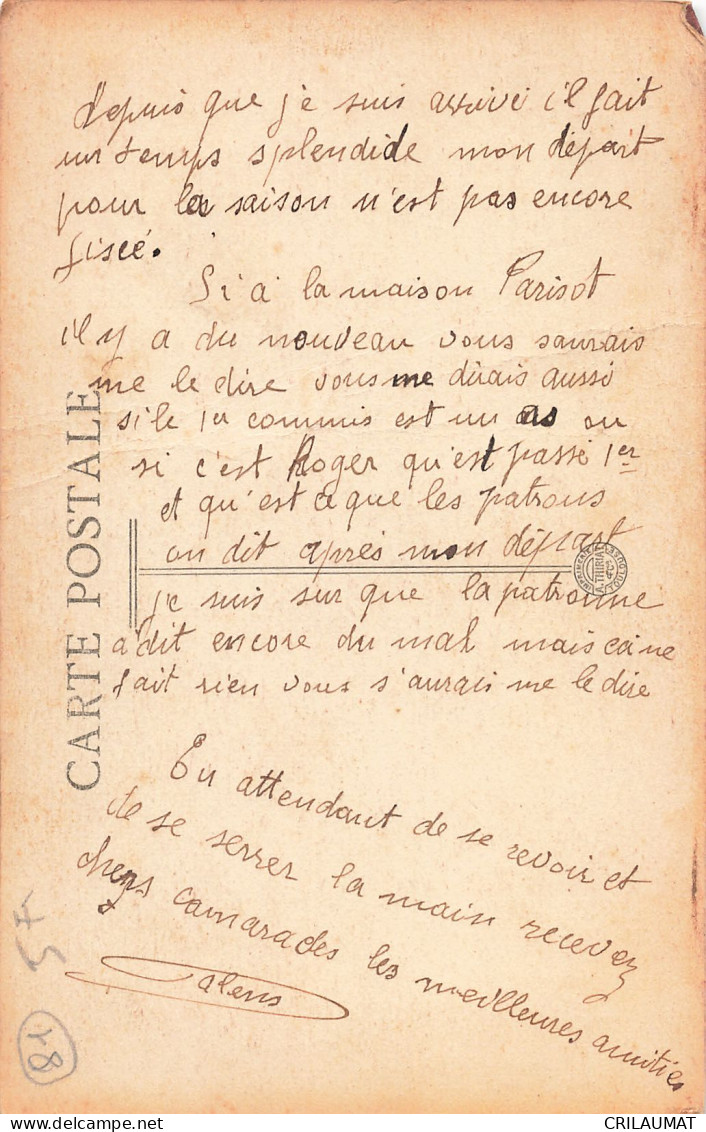 depuis que je suis arrivé il fait
un temps splendide mon départ
pour la saison n'est pas encore
fiscé.
Si a la maison Parisot
il y a du nouveau vous saurais
me le dire vous me dirais aussi
si le 1er commis est un as ou
si c'est Roger qu'est passé 1er
et qu'est ce que les patrons
on dit aprés mon départ
je suis sur que la patronne
a dit encore du mal mais ca ne
fait rien vous s'aurais me le dire
En attendant de se revoir et
de se serrer la main recevez
chers camarades les meilleures amitiés
CARTE POSTALE
18
CRILAUMAT